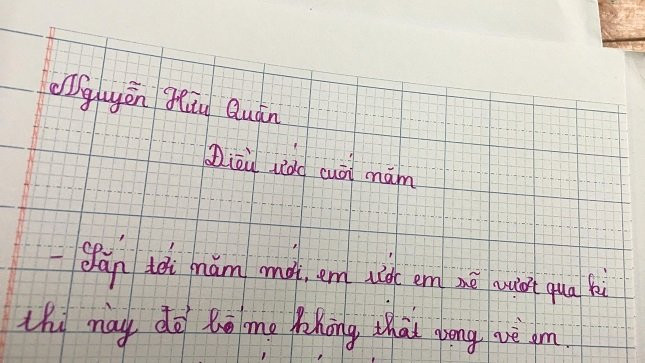 Nguyễn Hữu Quân
Điều ước cuối năm
- Sắp tới năm mới, em ước em sẽ vượt qua kì
thi này để bố mẹ không thất vọng về em.